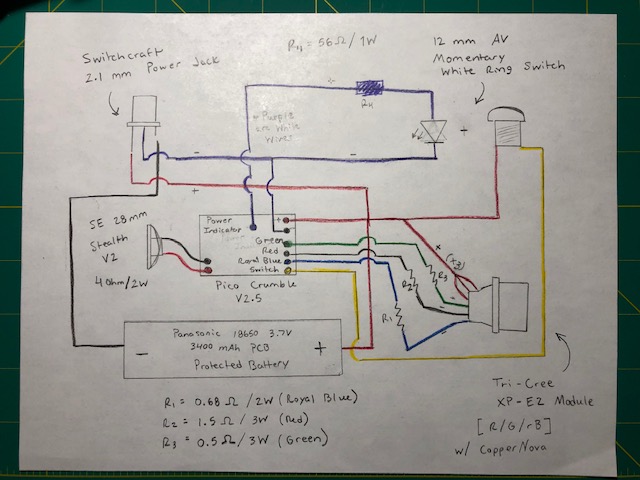 Switchcraft
2.1 mm Power Jack
R4 = 56Ω / 1W
12 mm AV
Momentary
White Ring Switch
R4
* Purple
are white
wires
-
-
+
+
SE 28mm
Stealth
V2
4 Ohm/2W
Power
Indicator
+
-
Green
Red
Royal Blue
Switch
Pico Crumble
V2.5
+
(x3)
-
R3
R2
R1
Panasonic 18650 3.7V
3400 mAh PCB
Protected Battery
-
+
R1 = 0.68 Ω / 2W (Royal Blue)
R2 = 1.5 Ω / 3W (Red)
R3 = 0.5 Ω / 3W (Green)
Tri-Cree
XP-E2 Module
[R/G/rB]
w/ CopperNova